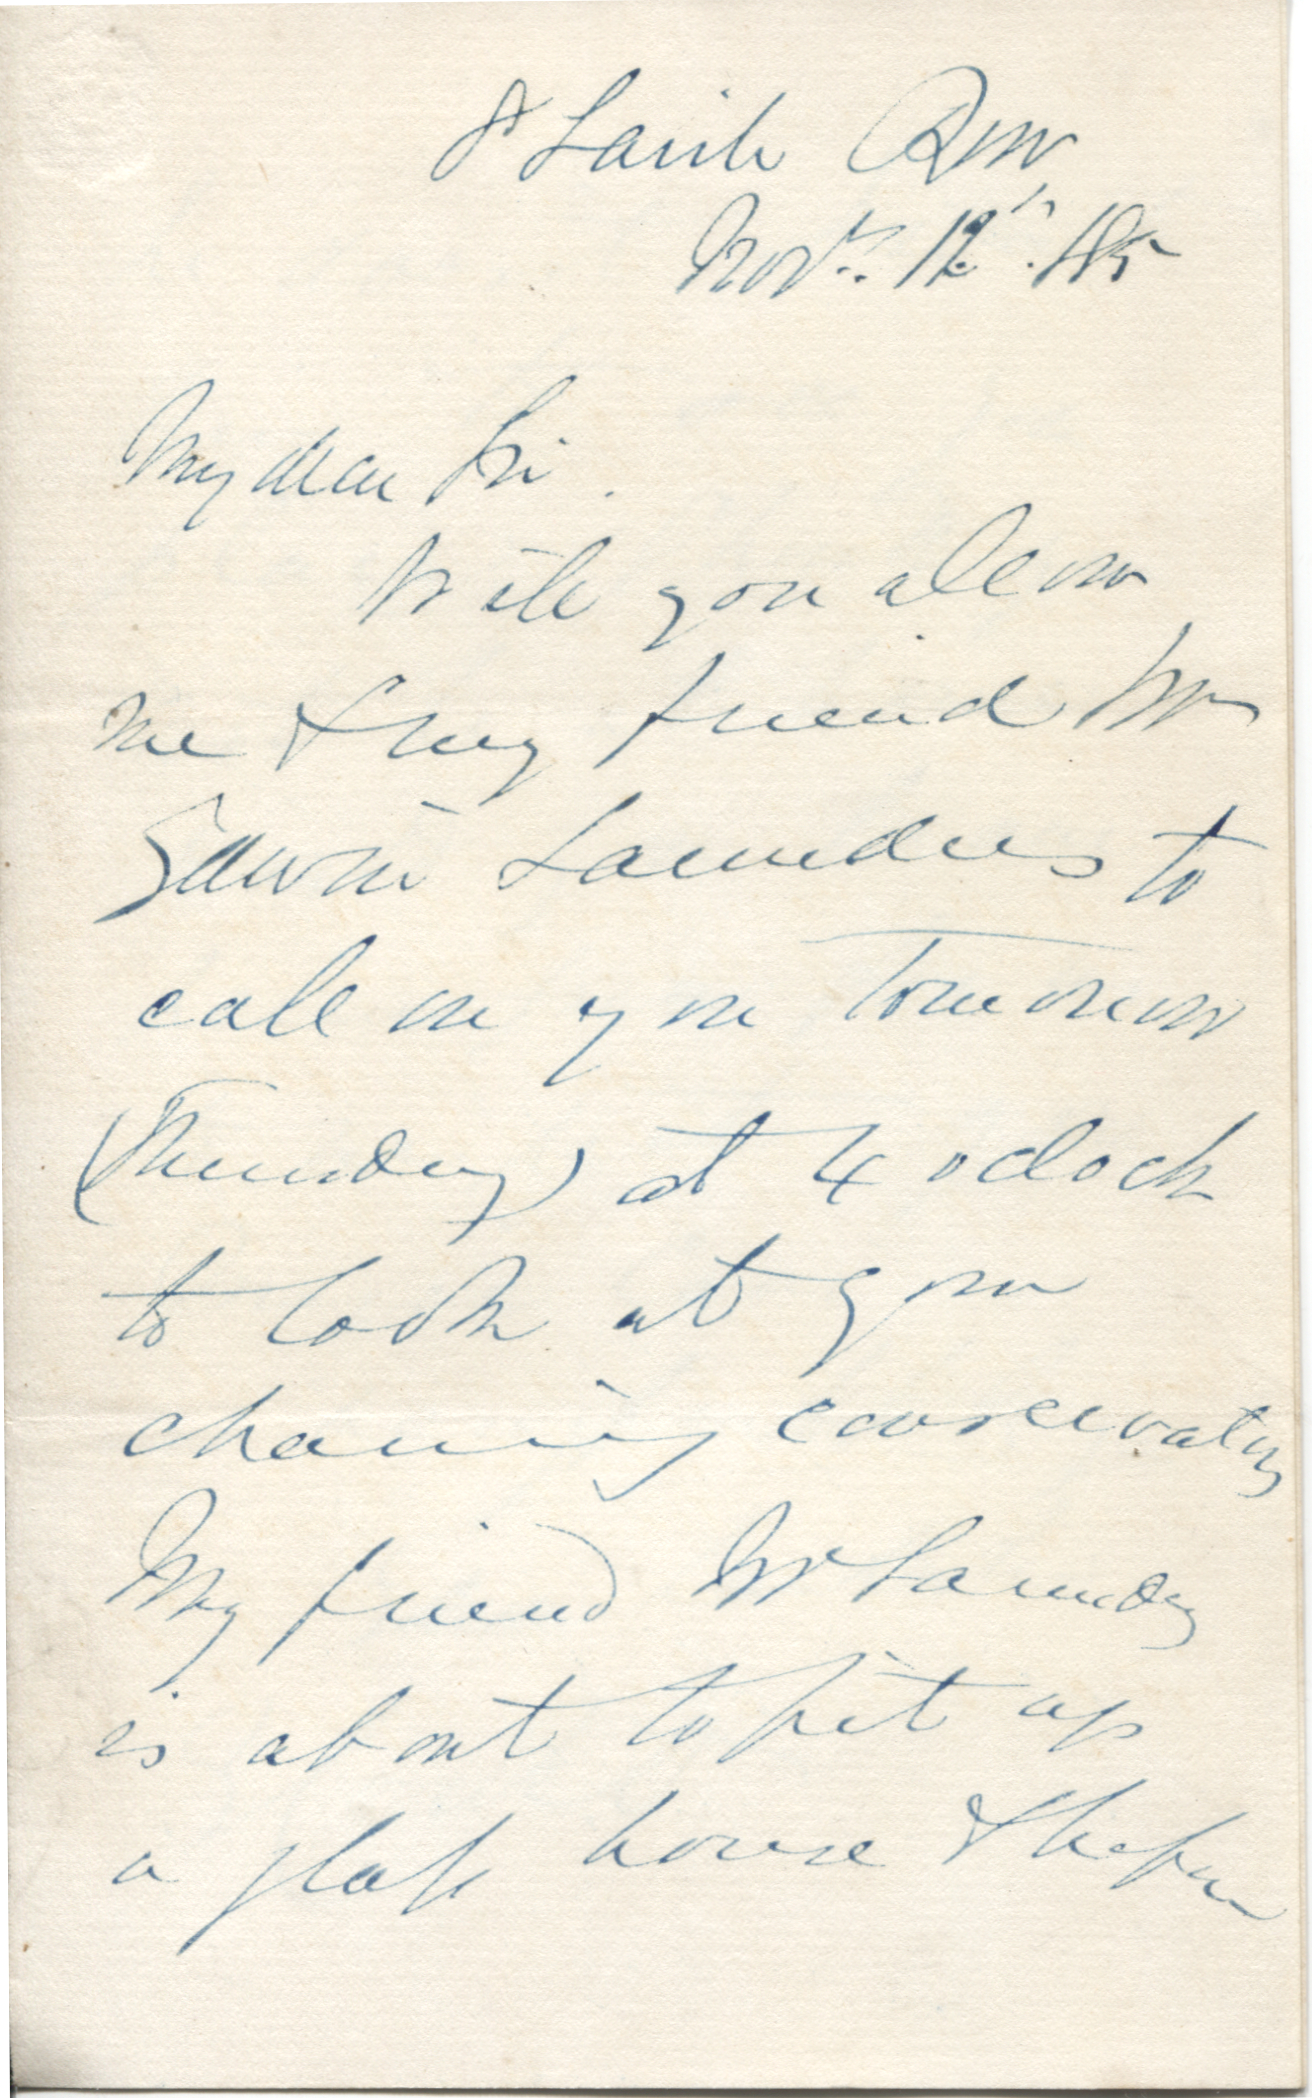 8 Savile Row
Novr. 12th. /85
My dear Sir.
Will you allow
me & my friend Mr
Edwin Saunders to
call on you Tomorrow
(Thursday) at 4 oclock
to look at your
charming conservatory
My friend Mr Saunders
is about to fit up
a glass house & before